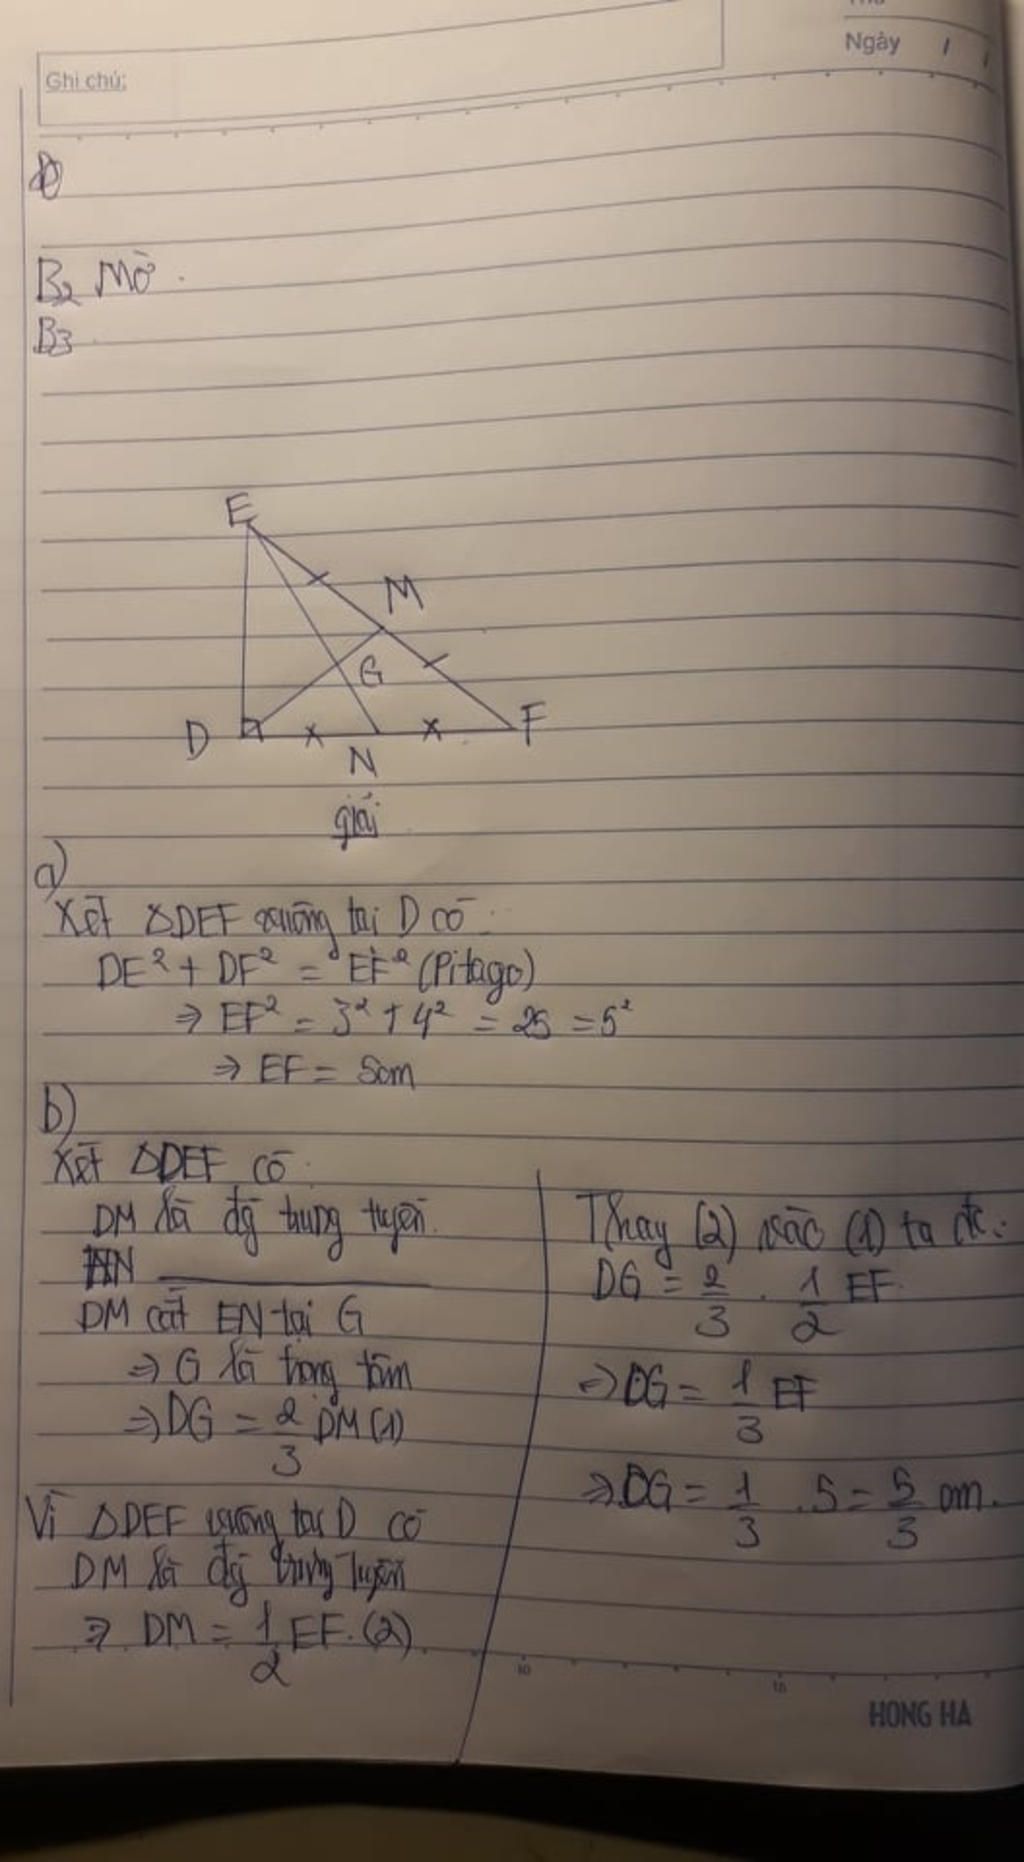 Thứ
Ngày / /
Ghi chú:
B2 Mờ.
B3
E
M
G
D
N
F
giải
a)
Xét ΔDEF vuông tại D có:
DE² + DF² = EF² (Pitago)
⇒ EF² = 3² + 4² = 25 = 5²
⇒ EF = 5cm
b)
Xét ΔDEF có:
DM là đg trung tuyến.
EN
DM cắt EN tại G
⇒ G là trọng tâm
⇒ DG = 2/3 DM (1)
Vì ΔDEF vuông tại D có
DM là đg trung tuyến
⇒ DM = 1/2 EF. (2)
Thay (2) vào (1) ta đc:
DG = 2/3 . 1/2 EF.
⇒ DG = 1/3 EF
⇒ DG = 1/3 . 5 = 5/3 cm.
10
15
HONG HA